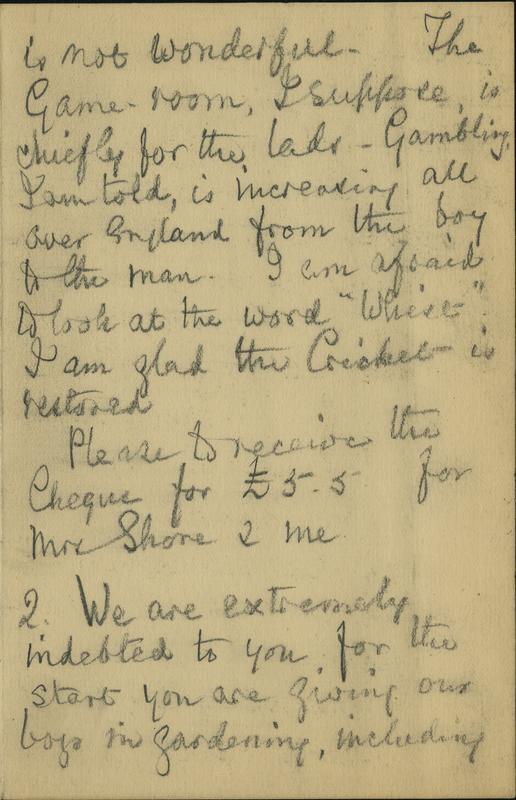 is not wonderful - The
Game-room, I suppose, is
chiefly for the lads - Gambling,
I am told, is increasing all
over England from the boy
to the man. I am afraid
to look at the word "Whist".
I am glad the Cricket is
restored
Please to receive the
Cheque for £5.5 for
Mrs Shore & me
2. We are extremely
indebted to you for the
start you are giving our
boys in gardening, including